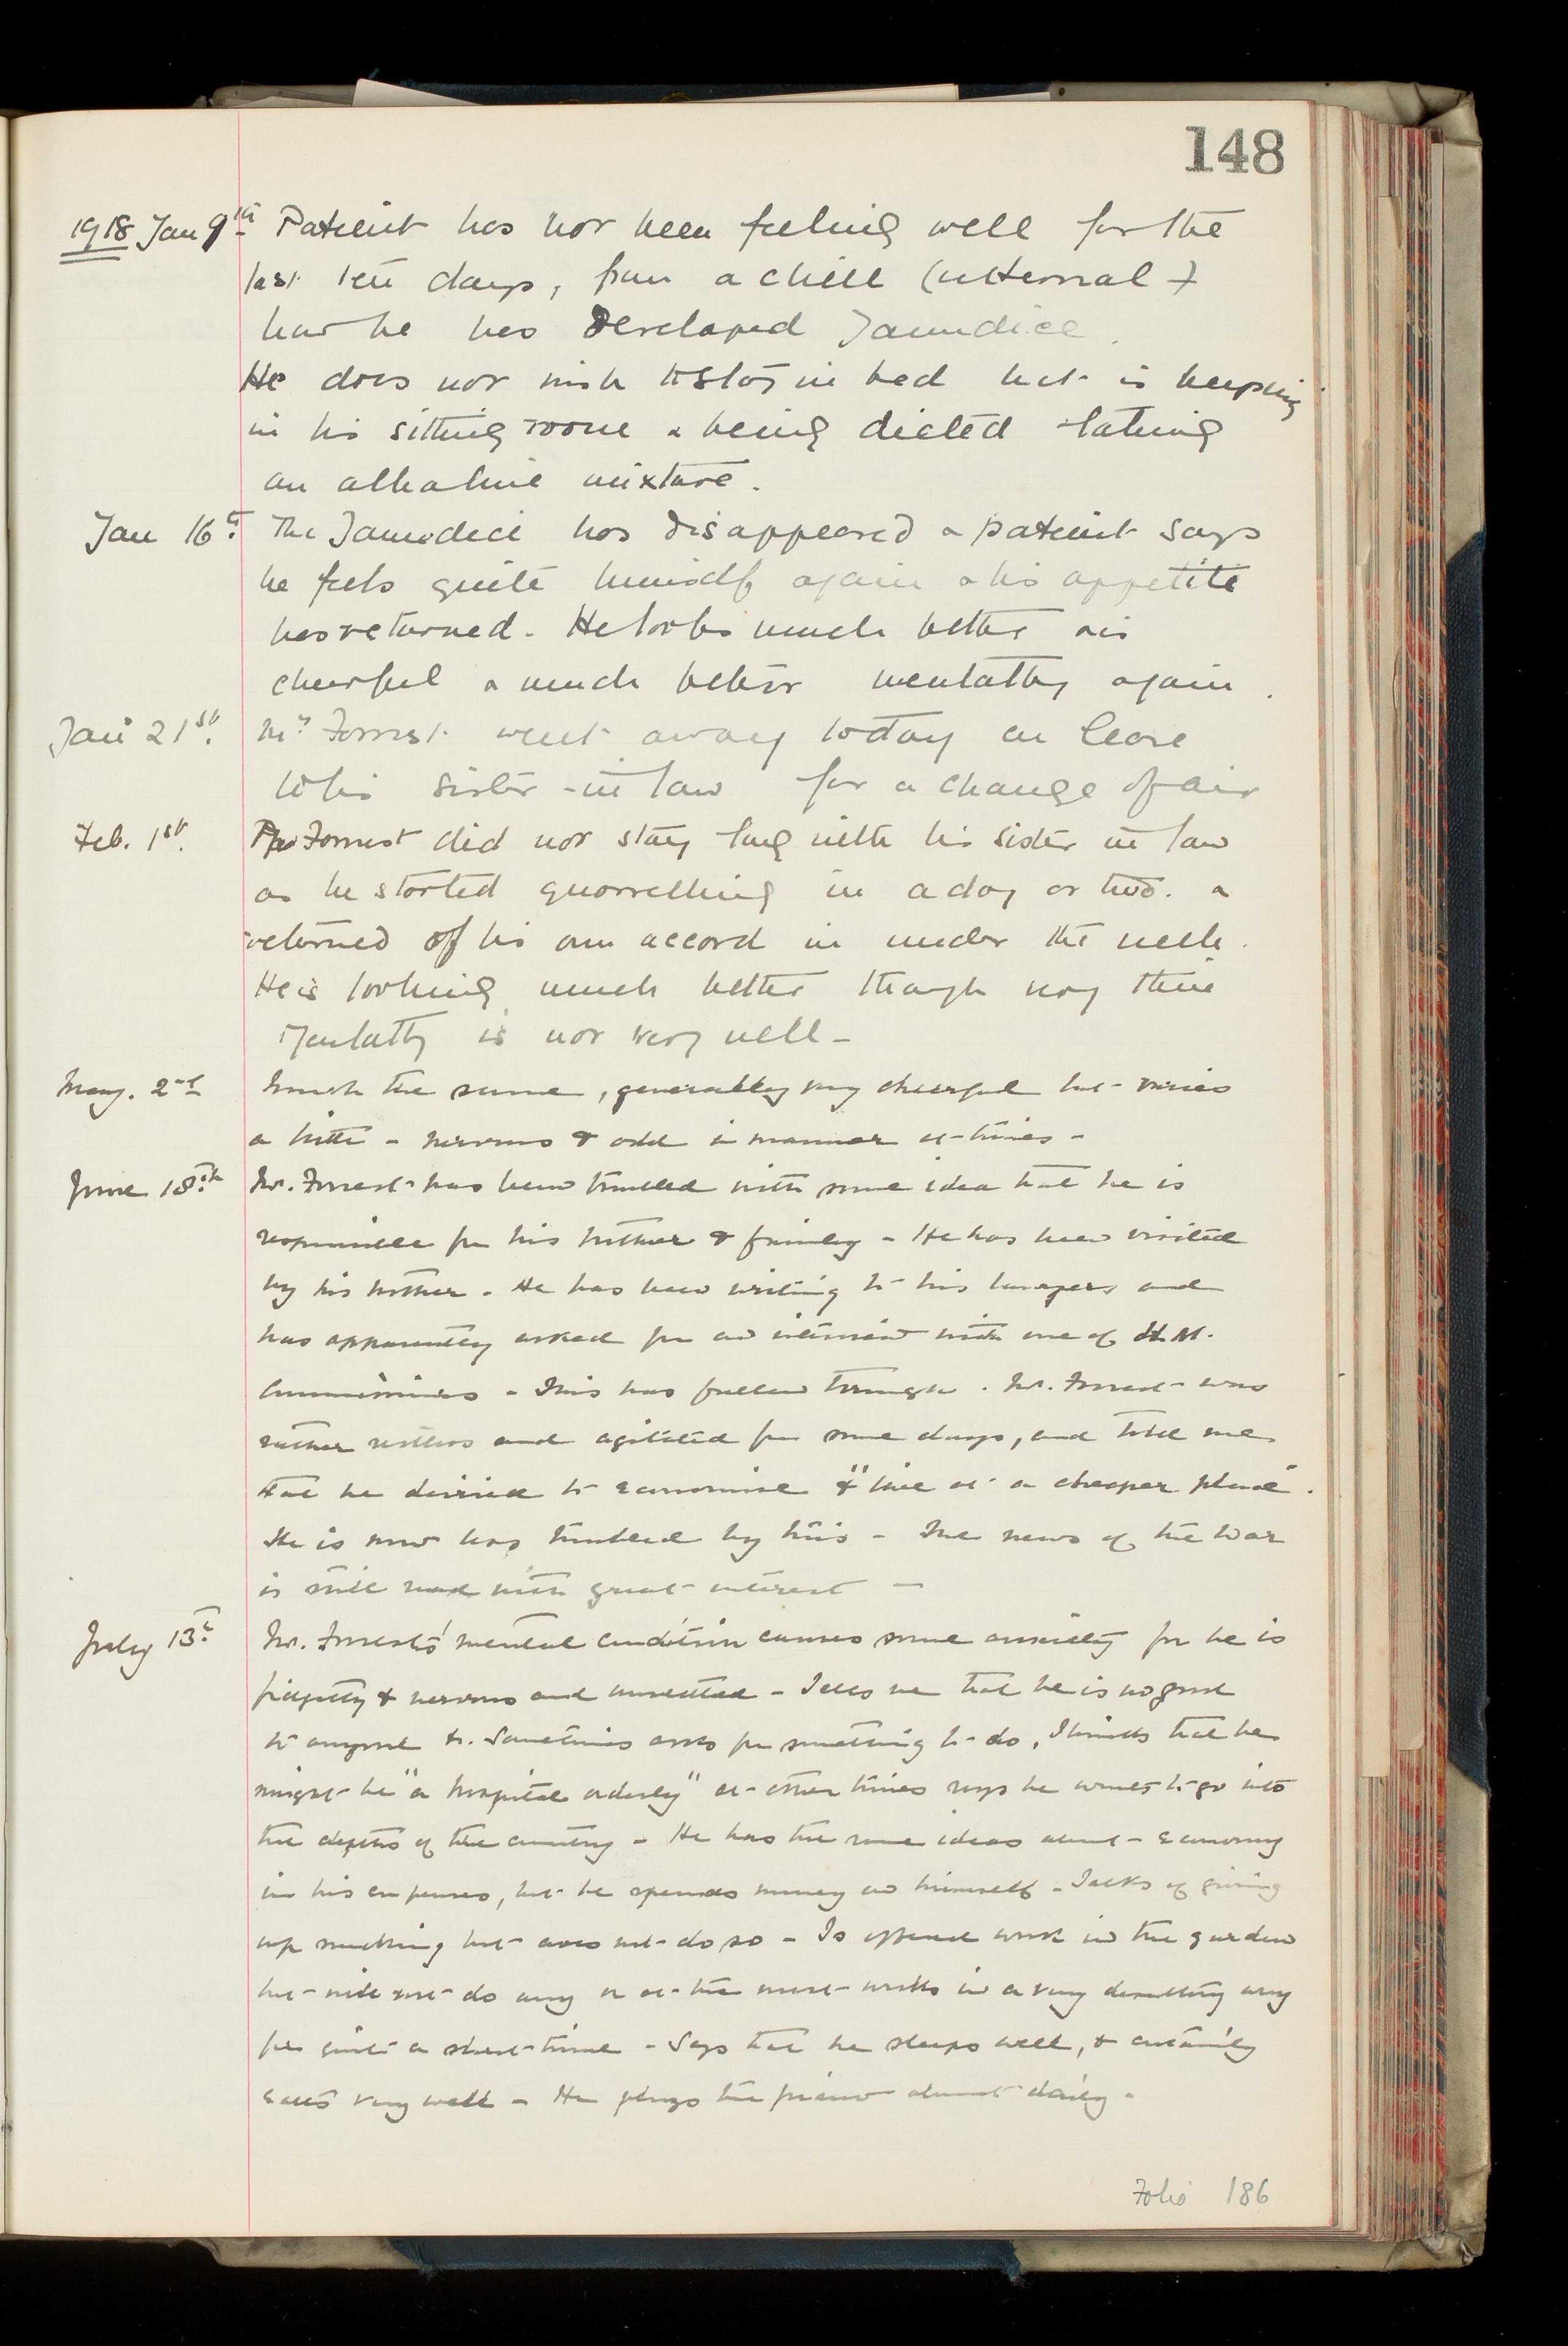 148
1918 Jan 9th Patient has not been feeling well for the
last ten days, from a chill (internal) +
now he has Developed Jaundice.
He does not wish to stay in bed but is keeping
in his sitting room & being dieted & taking
an alkaline mixture.
Jan 16th. The Jaundice has disappeared & patient says
he feels quite himself again & his appetite
has returned. He looks much better & is
cheerful & much better mentally again.
Jan 21st. Mr Forrest went away today on leave
to his sister-in law for a change of air
Feb. 1st. Mr Forrest did not stay long with his sister in law
as he started quarrelling in a day or two. &
returned of his own accord in under the week.
He is looking much better though very thin
Mentally is not very well -
May. 2nd Much the same, generally very cheerful but varies
a little - nervous & odd in manner at times -
June 18th. Mr. Forrest has been troubled with some idea that he is
responsible for his brother & family - He has been visited
by his brother. He has been writing to his lawyers and
has apparently asked for an interview with one of H.M.
Commissioners - This has fallen through. Mr. Forrest was
rather restless and agitated for some days, and told me
that he desired to economise & "live at a cheaper place".
He is now less troubled by this - The news of the War
is still read with great interest -
July 13th. Mr. Forrest's mental condition causes some anxiety for he is
fidgetty & nervous and unsettled - Tells me that he is no good
to anyone &c. Sometimes asks for something to do, thinks that he
might be "a hospital orderly" at other times says he wants to go into
the depths of the country - He has the same ideas about economy
in his expenses, but he spends money on himself - Talks of giving
up smoking but does not do so - Is offered work in the garden
but will not do any or at the most works in a very desultory way
for quite a short time - Says that he sleeps well, & certainly
eats very well - He plays the piano almost daily -
Folio 186